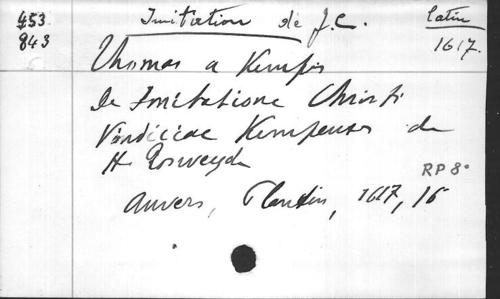 453 Imitation de J.C. latin
843 1617.
Thomas a Kempis
De Imitatione Christi
Vindiciae Kempenses de
H Rosweyde
RP 8º
Anvers, Plantin, 1617, 16